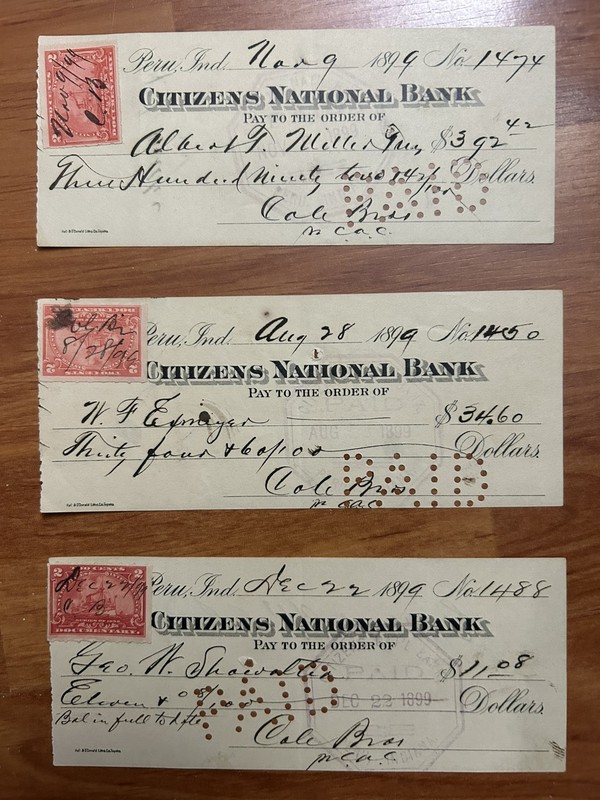 Nov 9/99
C.B
2
DOCUMENTARY
Peru, Ind. Nov 9 1899 No. 1474
CITIZENS NATIONAL BANK
PAY TO THE ORDER OF
Albert T. Miller $392 42
Three Hundred Ninety two & 42/100 Dollars.
PAID
Cole Bros
8/28/99
2
Peru, Ind. Aug 28 1899 No. 1450
CITIZENS NATIONAL BANK
PAY TO THE ORDER OF
PAID
AUG 1899
W. F. $34.60
Thirty four & 60/100 Dollars.
PAID
Cole Bros
2 2
Dec 22/99
C B
DOCUMENTARY.
Peru, Ind. Dec 22 1899 No. 1488
CITIZENS NATIONAL BANK
PAY TO THE ORDER OF
Geo. W. Showalter $11.08
PAID
DEC 23 1899
Eleven & 08/100 Dollars.
Bal in full to date
PAID
Cole Bros